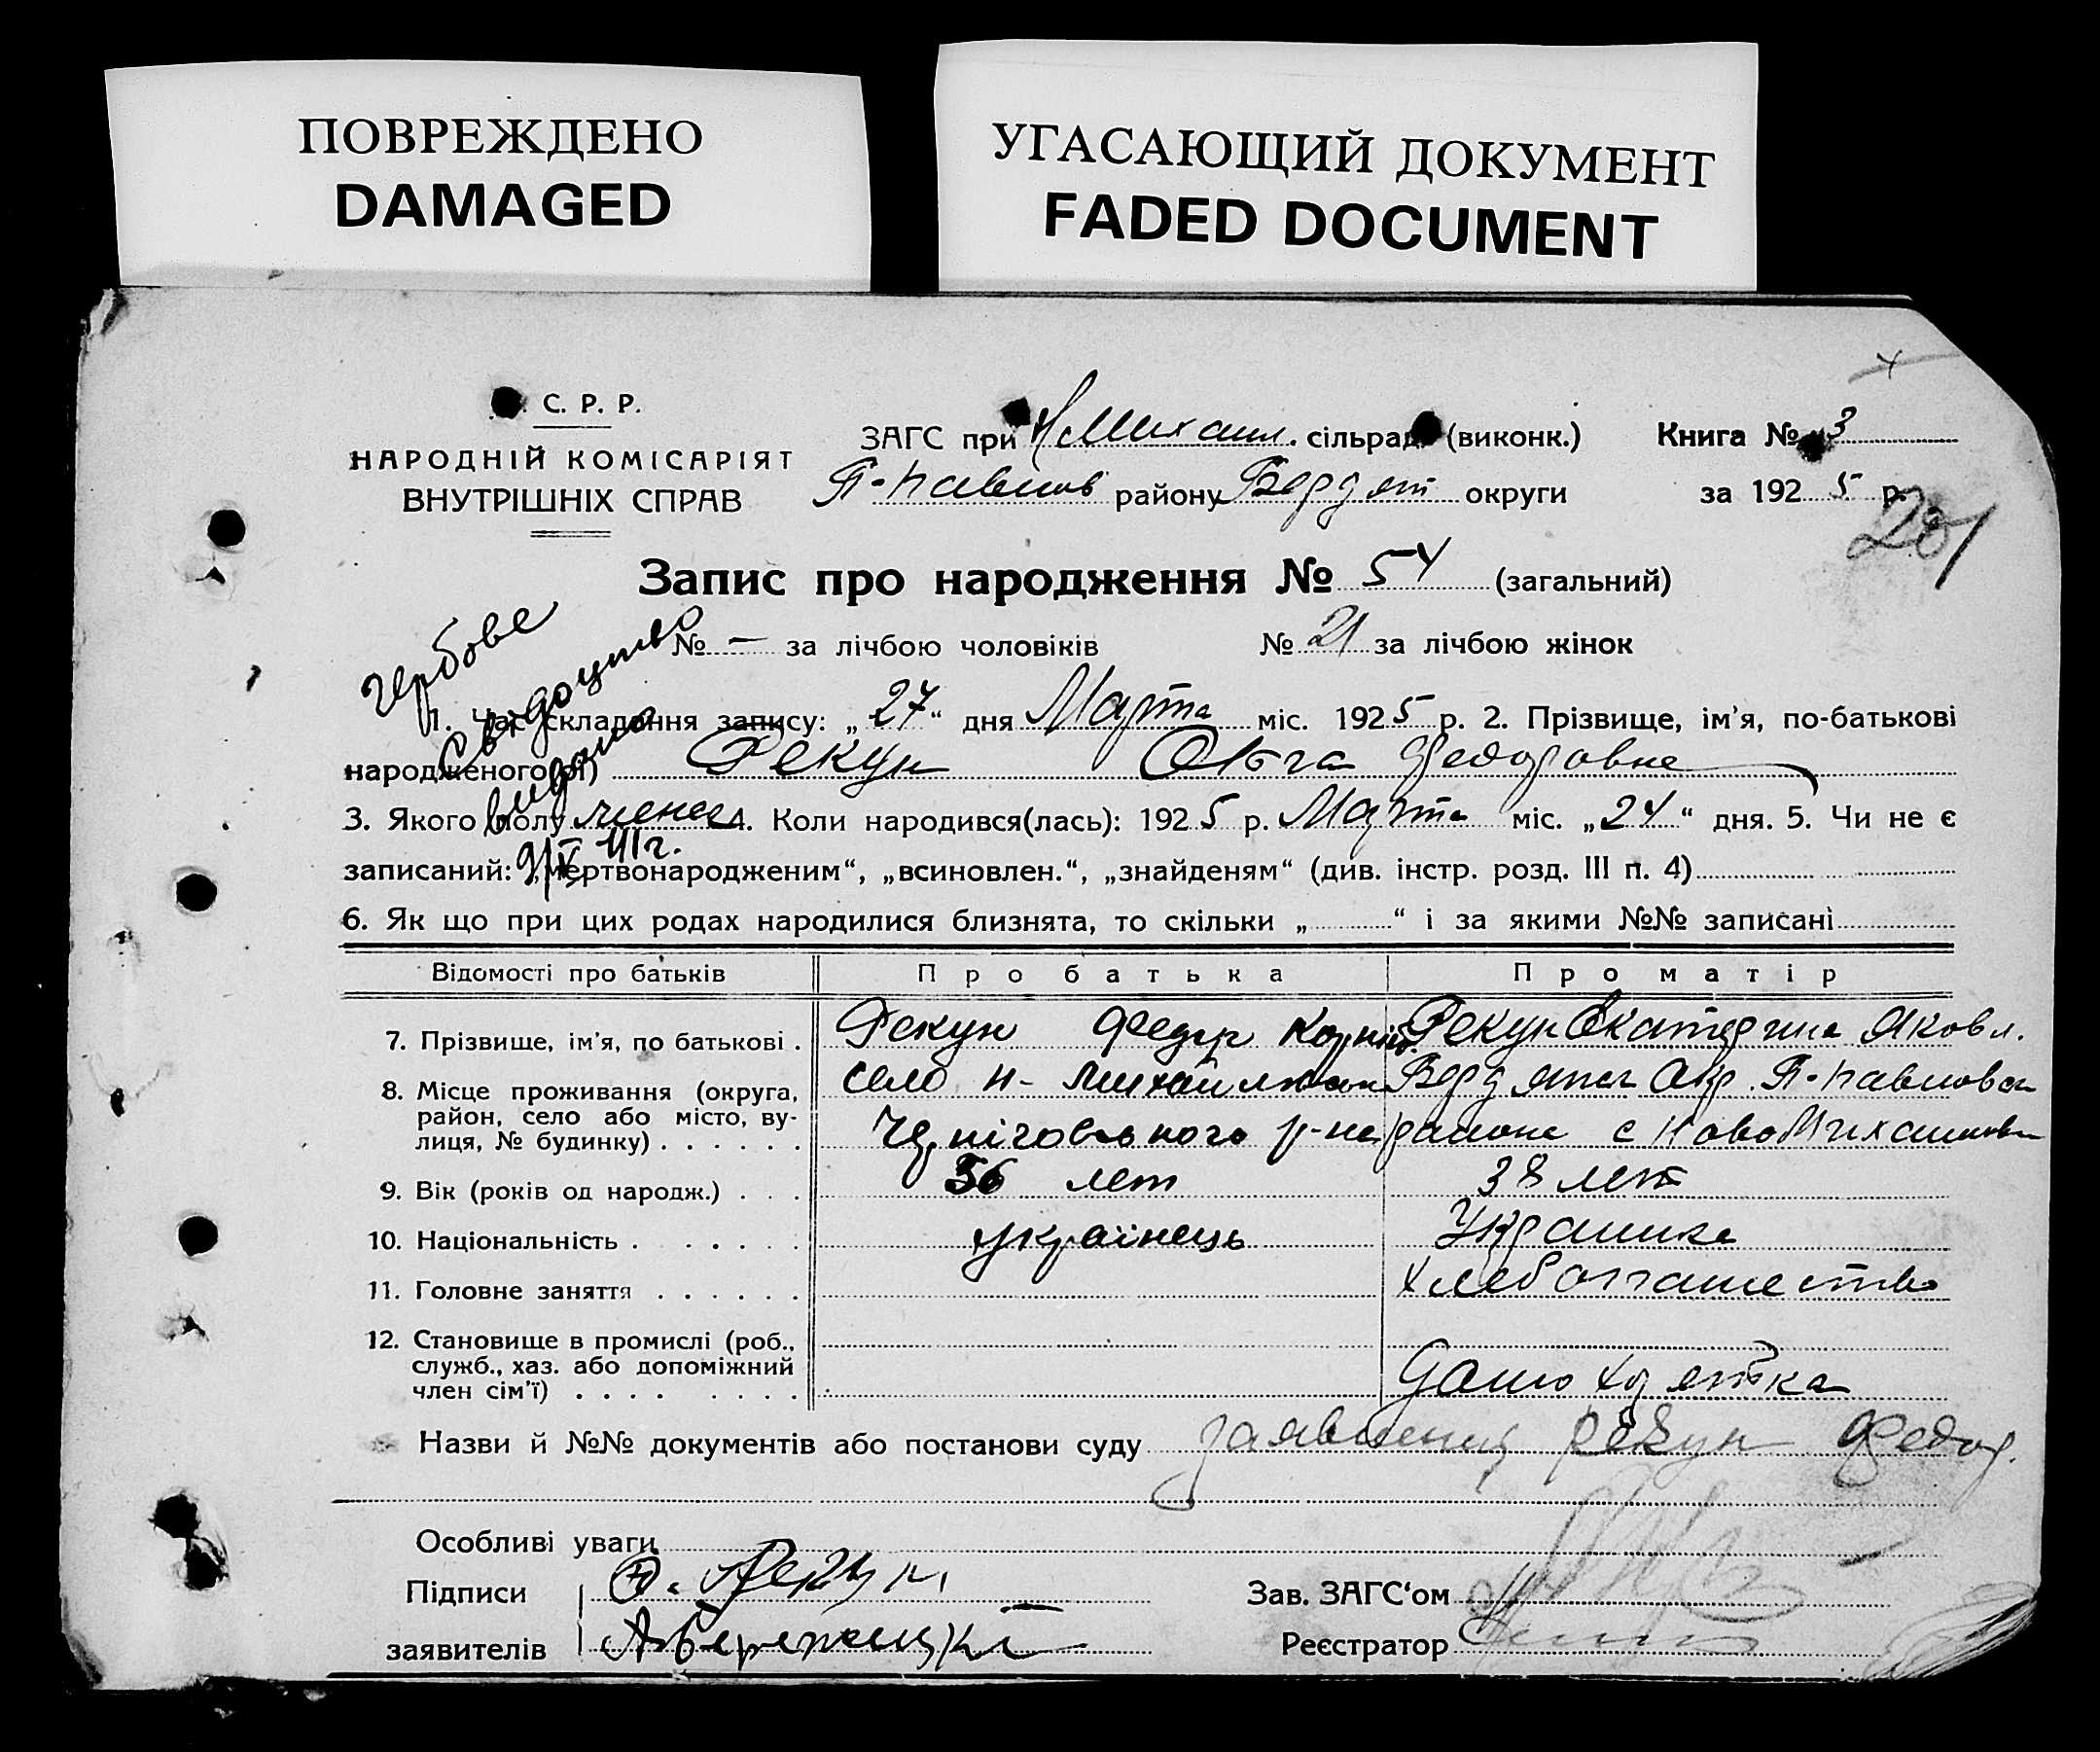 ПОВРЕЖДЕНО
DAMAGED
УГАСАЮЩИЙ ДОКУМЕНТ
FADED DOCUMENT
С. Р. Р.
НАРОДНІЙ КОМІСАРІЯТ
ВНУТРІШНІХ СПРАВ
ЗАГС при Н Михаил. сільрад (виконк.)
П-Павлов району Бердят округи
Книга № 3
за 192 5 р.
201
Запис про народження № 54 (загальний)
№ — за лічбою чоловіків № 21 за лічбою жінок
гербове
Свідоцтво
видано
9/V 41 г.
1. Час складання запису: „27“ дня Марта міс. 1925 р. 2. Прізвище, ім'я, по-батькові
народженого(ої) Рекун Ольга Федоровна
3. Якого полу женск 4. Коли народився(лась): 1925 р. Марта міс. „24“ дня. 5. Чи не є
записаний: „мертвонародженим“, „всиновлен.“, „знайденям“ (див. інстр. розд. III п. 4)
6. Як що при цих родах народилися близнята, то скільки „ “ і за якими №№ записані
Відомості про батьків Про батька Про матір
7. Прізвище, ім'я, по батькові . Рекун Федір Корнів. Рекун Екатерина Яковл.
8. Місце проживання (округа,
район, село або місто, ву-
лиця, № будинку) . . . . . .
село Н-Михайлівка
Черніговського р-на
Бердянск Окр. П-Павловск
района с НовоМихайловка
9. Вік (років од народж.) . . . 36 лет 38 лет
10. Національність . . . . . . українець Украинка
11. Головне заняття . . . . . . хлебопашество
12. Становище в промислі (роб.,
служб., хаз. або допоміжний
член сім'ї) . . . . . . . .
Назви й №№ документів або постанови суду заявление Рекун Федор.
Особливі уваги
Підписи Ф. Рекун
заявителів
Зав. ЗАГС‘ом
Реєстратор